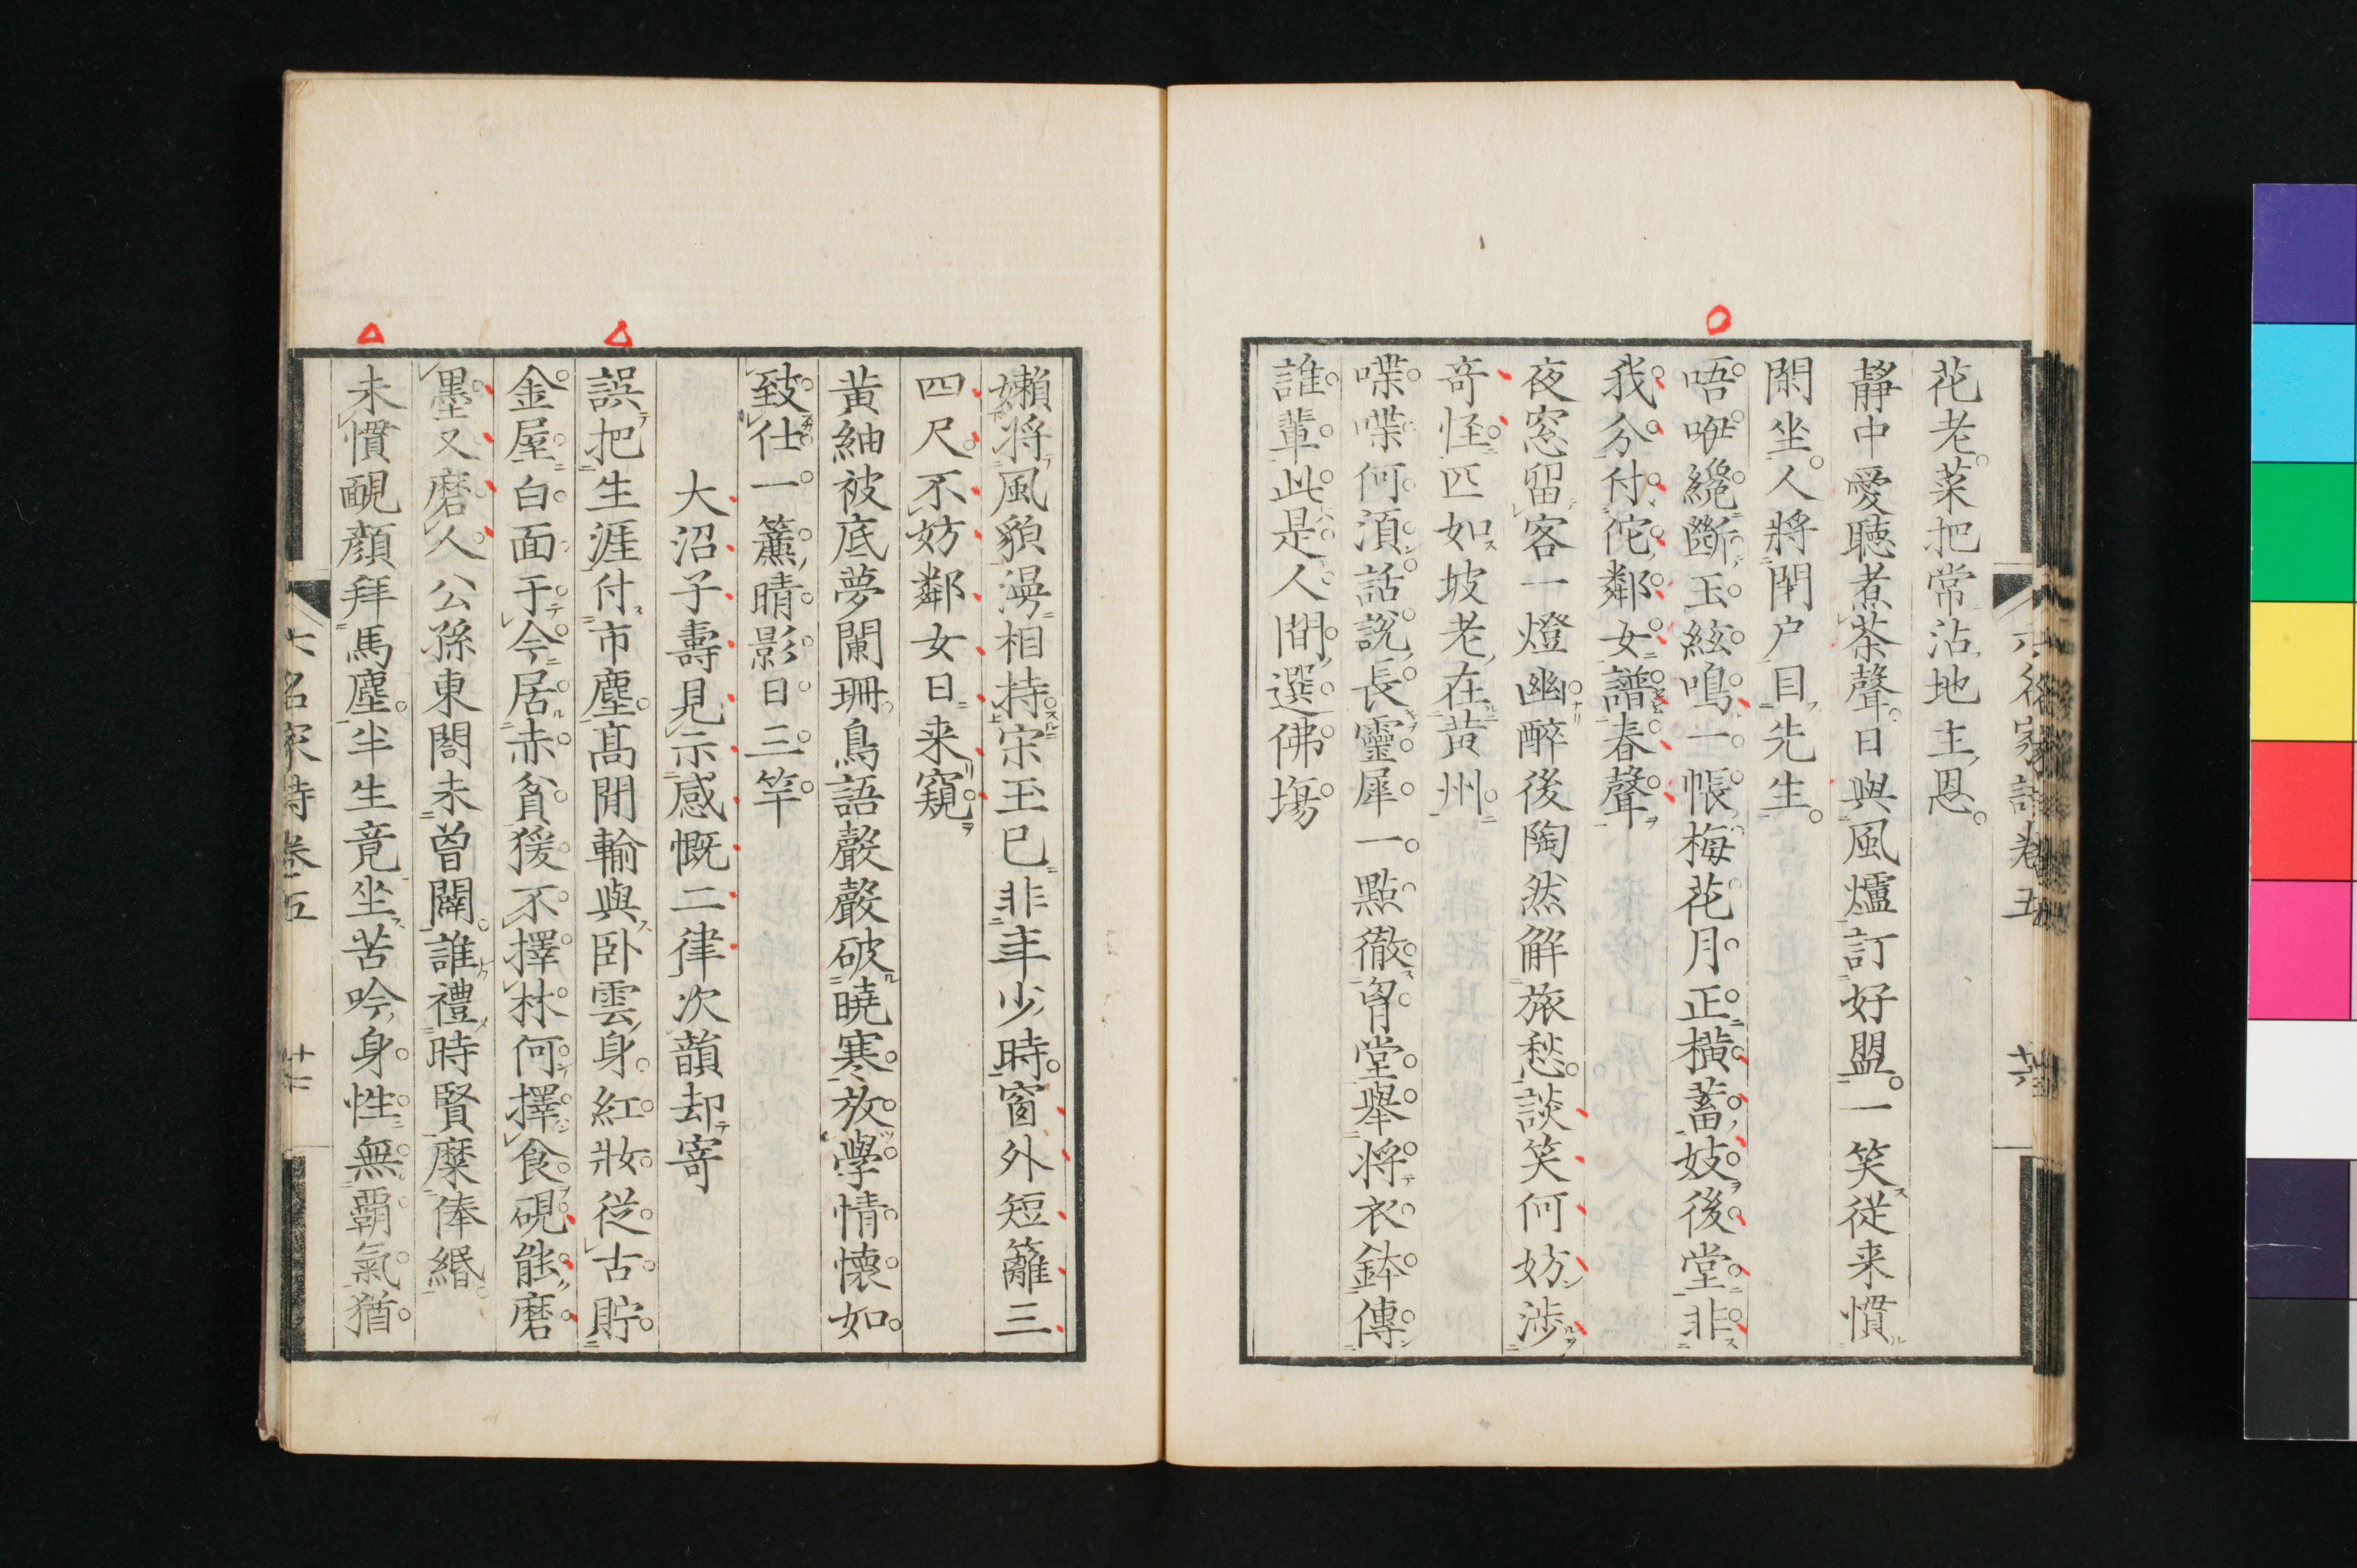 花老菜把常沾地主恩
靜中愛聽煮茶聲日與風爐訂好盟一笑從来慣
閑坐人將閉户目先生
唔咿纔斷玉絃鳴一帳梅花月正橫蓄妓後堂非
我分付佗鄰女譜春聲
夜窓留客一燈幽醉後陶然解旅愁談笑何妨涉
奇怪匹如坡老在黄州
喋喋何湏話説長靈犀一點徹胷堂舉将衣鉢傳
誰輩此是人間選佛塲
嬾将風貌漫相持宋玉已非年少時窗外短籬三
四尺不妨鄰女日来窺
黄紬被底夢闌珊鳥語嚴嚴破曉寒放學情懷如
致仕一簾晴影日三竿
大沼子壽見示感慨二律次韻却寄
誤把生涯付市塵髙閒輸與卧雲身紅妝從古貯
金屋白面于今居赤貧猨不擇林何擇食硯能磨
墨又磨人公孫東閤未曽闢誰禮時賢糜俸緡
未慣靦顏拜馬塵半生竟坐苦吟身性無覇氣猶
六名家詩卷五